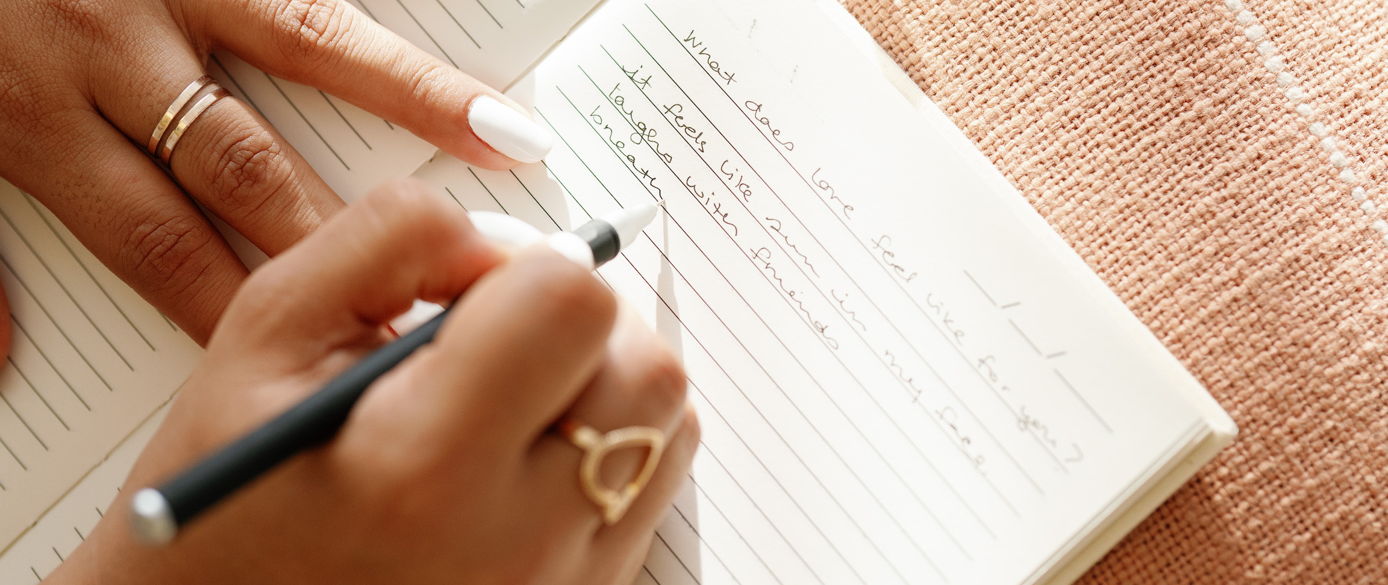 __/__/__
What does love feel like for you?
it feels like sun in my face
laughs with friends
breath